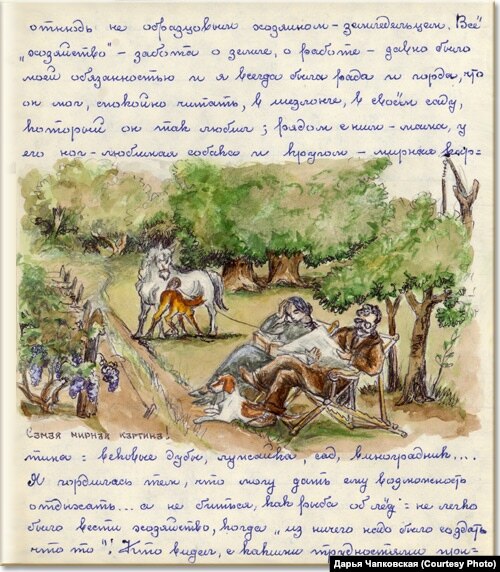 отнюдь не образцовым хозяином-земледельцем. Всё
„хозяйство" - забота о земле, о работе - давно было
моей обязанностью и я всегда была рада и горда, что
он мог, спокойно читать, в шезлонге, в своём саду,
который он так любил; рядом с ним - мама, у
его ног - любимая собака и кругом - мирная кар=
Самая мирная картина!
тина: вековые дубы, лужайка, сад, виноградник...
Я гордилась тем, что могу дать ему возможность
отдыхать... а не биться, как рыба об лёд: не легко
было вести хозяйство, когда „из ничего надо было создать
что то"! Кто видел, с какими трудностями при=
Дарья Чапковская (Courtesy Photo)